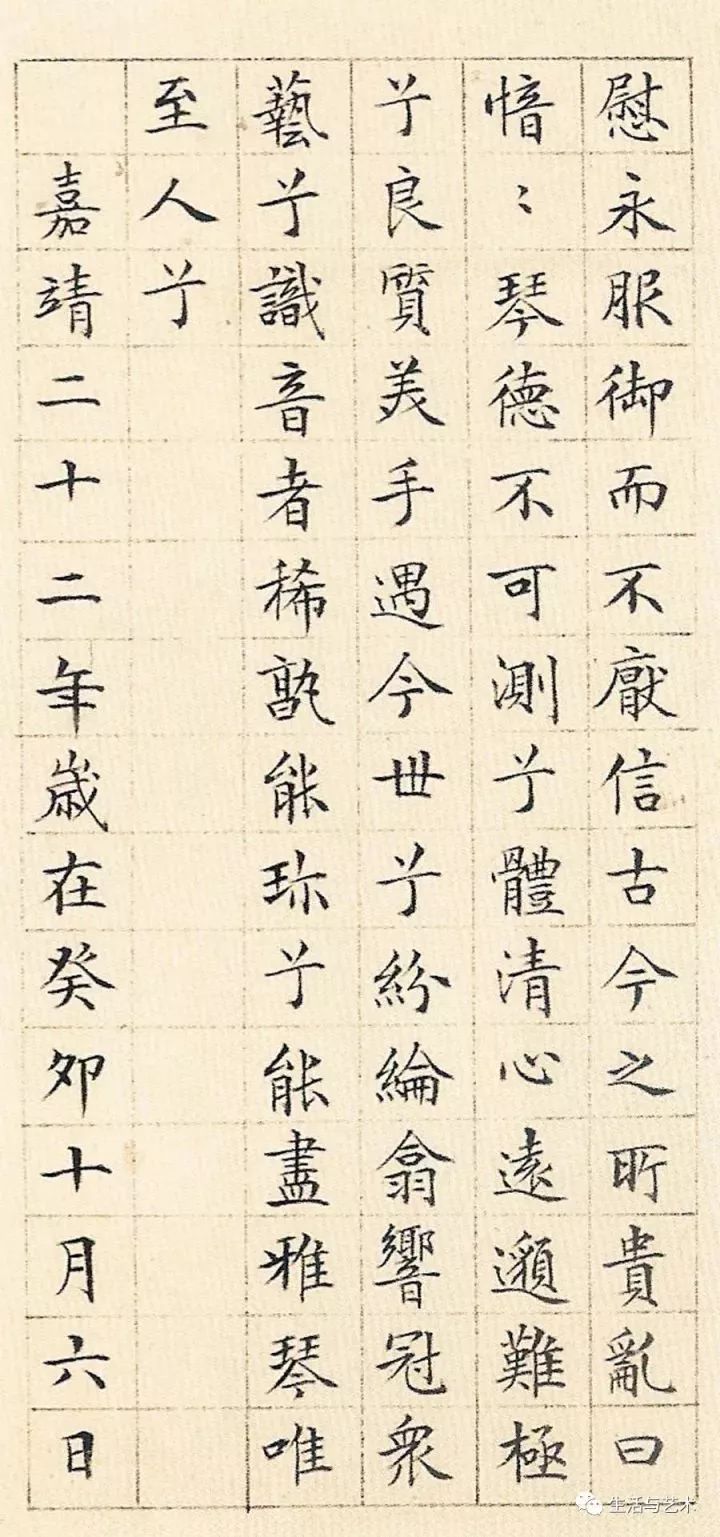 慰永服御而不厭信古今之所貴亂曰
愔〻琴德不可測兮體清心遠邈難極
兮良質美手遇今世兮紛綸翕響冠衆
藝兮識音者稀孰能珎兮能盡雅琴唯
至人兮
嘉靖二十二年歲在癸卯十月六日
生活与艺术